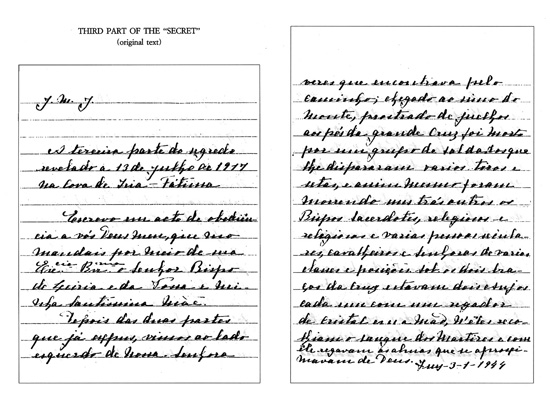 THIRD PART OF THE “SECRET”
(original text)
J. M. J.
A terceira parte do segredo
revelado a 13 de julho de 1917
na Cova de Iria - Fátima
Escrevo em acto de obediên
cia a vós Deus meu, que mo
mandais por meio de sua
Ex.cia Rev.ma o Senhor Bispo
de Leiria e da Vossa e mi-
nha Santíssima Mãe.
Depois das duas partes
que já expus, vimos ao lado
esquerdo de Nossa Senhora
veres que encontrava pelo
caminho; chegado ao cimo do
monte, prostrado de juelhos
aos pés da grande Cruz foi morto
por um grupo de soldados que
lhe dispararam varios tiros e
setas, e assim mesmo foram
morrendo uns trás outros os
Bispos Sacerdotes, religiosos e
religiosas e varias pessoas secula
res, cavalheiros e senhoras de varias
classes e posições. Sob os dois bra-
ços da Cruz estavam dois Anjos
cada um com um regador
de cristal em a mão, n'êles reco-
lhiam o sangue dos Martires e com
êle regavam as almas que se aproxi-
mavam de Deus.
Tuy-3-1-1944